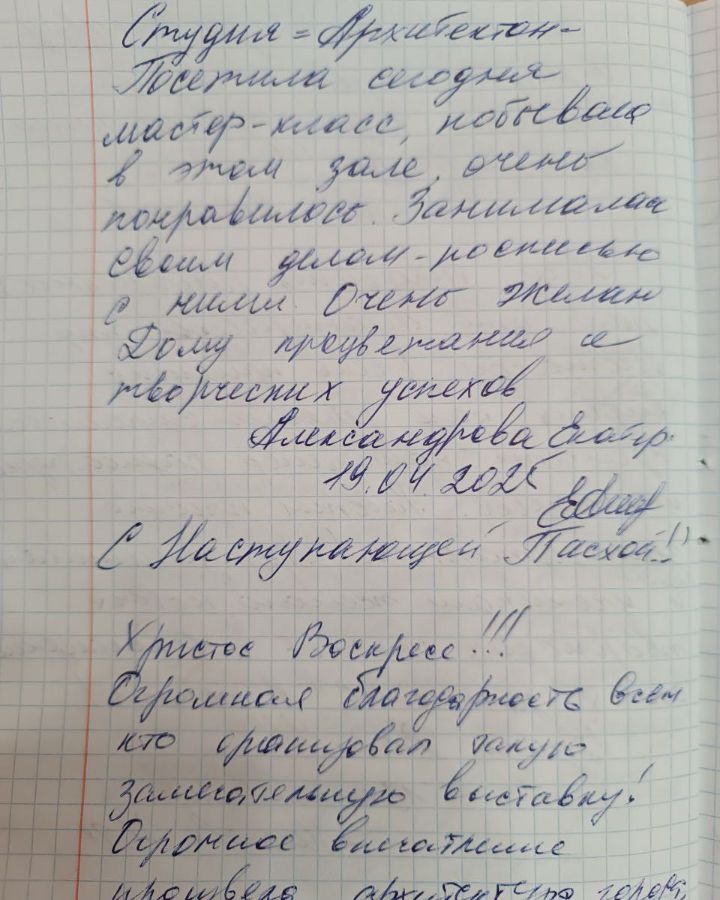 Студия = Архитектон-
Посетила сегодня
мастер-класс, побывала
в этом зале, очень
понравилось. Занималась
своим делом - росписью
с ними. Очень желаю
Дому процветания и
творческих успехов
Александрова Екатер.
19.04.2025
С Наступающей Пасхой!!
Христос Воскресе!!!
Огромная благодарность всем
кто организовал такую
замечательную выставку!
Огромное впечатление
произвела архитектура города,